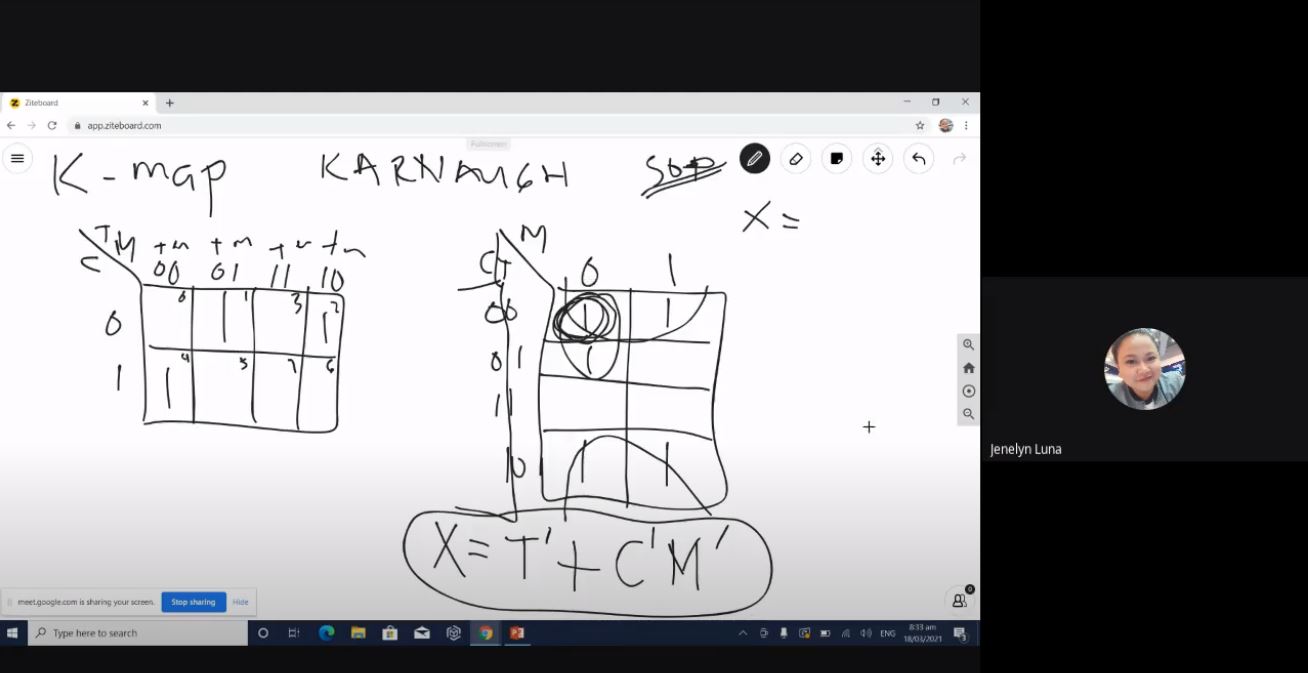 Ziteboard
app.ziteboard.com
Fullscreen
K-map KARNAUGH SOP
X =
TM
C
00 01 11 10
0 1 3 2
0 1 1
4 5 7 6
1 1
M
CT
0 1
00 1 1
01 1
11
10 1 1
X = T' + C'M'
Jenelyn Luna
meet.google.com is sharing your screen. Stop sharing Hide
0
Type here to search
ENG
8:33 am
18/03/2021
3